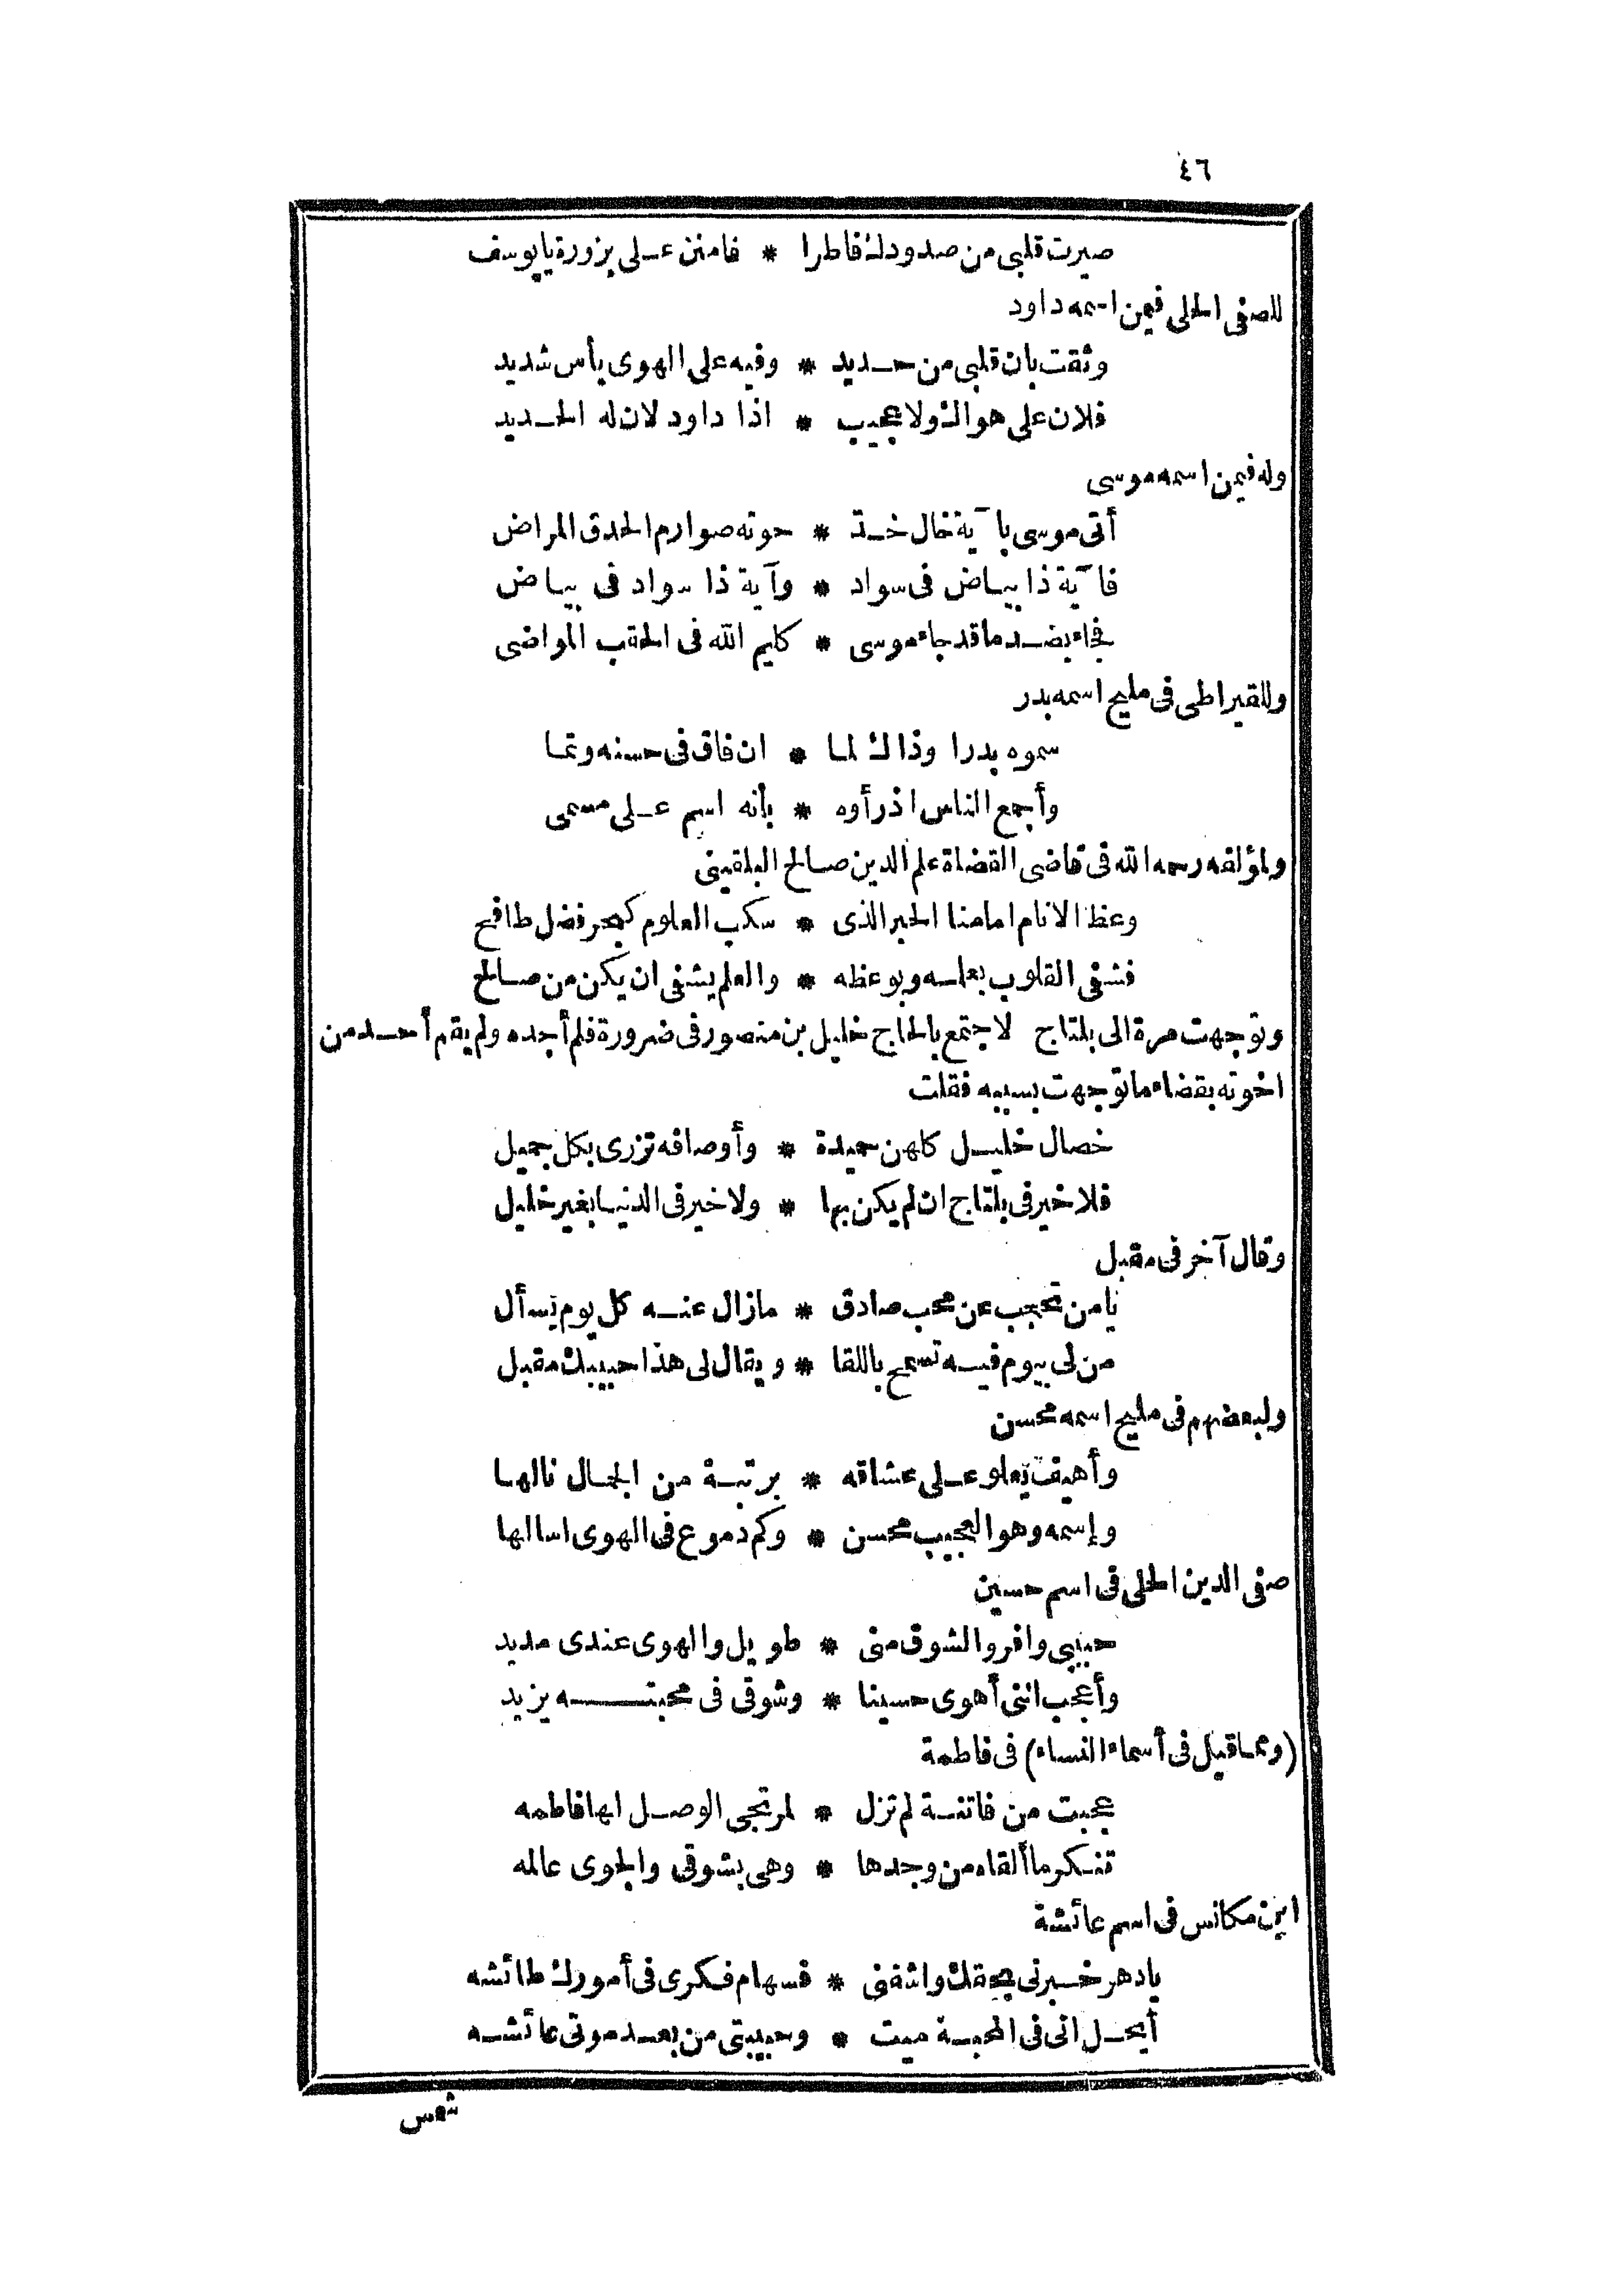 ٤٦
صيرت قلبى من صدودك فاطرا * فامنن عـلى بزورة يا يوسف
للصفى الحلى فيمن اسمه داود
وثقت بان قلبى من حـديد * وفيه على الهوى بأس شديد
فلان على هواك ولا عجيب * اذا داود لان له الحـديد
وله فيمن اسمه موسى
أتى موسى بآية خال خـد * حوته صوارم الحدق المراض
فآية ذا بياض فى سواد * وآية ذا سواد فى بياض
فجاء بضـد ما قد جاء موسى * كليم الله فى الحقب المواضى
وللقيراطى فى مليح اسمه بدر
سموه بدرا وذاك لما * ان فاق فى حسنه وتما
وأجمع الناس اذ رأوه * بأنه اسم عـلى مسمى
ولمؤلفه رحمه الله فى قاضى القضاة علم الدين صالح البلقينى
وعظ الانام امامنا الحبر الذى * سكب العلوم كبحر فضل طافح
فشفى القلوب بعلمه وبوعظه * والعلم يشفى ان يكن من صالح
وتوجهت مرة الى بلتاج لاجتمع بالحاج خليل بن منصور فى ضرورة فلم أجده ولم يقم أحـد من
اخوته بقضاء ما توجهت بسببه فقلت
خصال خليـل كلهن حميدة * وأوصافه تزرى بكل جميل
فلا خير فى بلتاج ان لم يكن بها * ولا خير فى الدنيا بغير خليل
وقال آخر فى مقبل
يا من تحجب عن محب صادق * ما زال عنـه كل يوم يسأل
من لى بيوم فيـه تسمح باللقا * ويقال لى هذا حبيبك مقبل
ولبعضهم فى مليح اسمه محسن
وأهيف يعلو عـلى عشاقه * برتبـة من الجمال نالها
وإسمه وهو العجيب محسن * وكم دموع فى الهوى اسالها
صفى الدين الحلى فى اسم حسين
حبيبى وافر والشوق منى * طويل والهوى عندى مديد
وأعجب اننى أهوى حسينا * وشوقى فى محبتـــه يزيد
(ومما قيل فى أسماء النساء) فى فاطمة
عجبت من فاتنـة لم تزل * لمرتجى الوصـل لها فاطمه
تنـكر ما ألقاه من وجدها * وهى بشوقى والجوى عالمه
ابن مكانس فى اسم عائشة
يا دهر خـبرنى بحقك واشفنى * فسهام فـكرى فى أمورك طائشه
أيحـل انى فى المحبـة ميت * وحبيبتى من بعـد موتى عائشـه
شمس